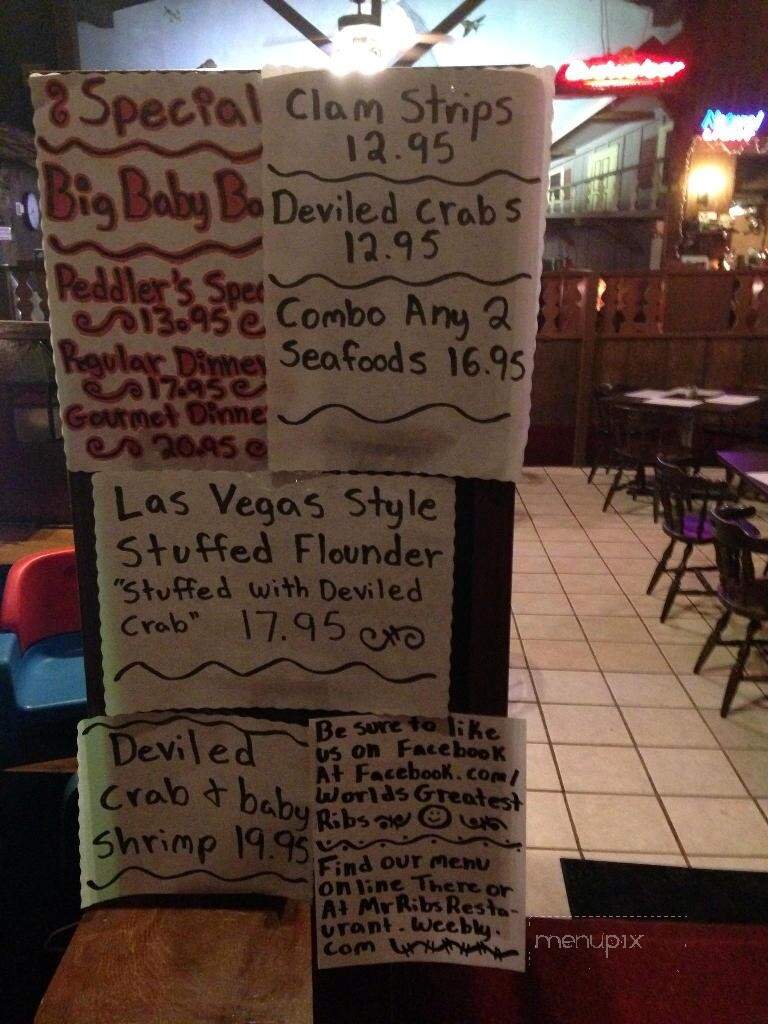 Special
Big Baby
Peddler's
13.95
Regular
17.95
Gourmet
20.95
Clam Strips
12.95
Deviled Crabs
12.95
Combo Any 2
Seafoods 16.95
Las Vegas Style
Stuffed Flounder
"Stuffed with Deviled
Crab" 17.95
Deviled
Crab & baby
Shrimp 19.95
Be sure to like
us on Facebook
At Facebook.com/
WorldsGreatest
Ribs
Find our menu
online There or
At MrRibsResta-
urant.Weebly.
com
Budweiser
menupix